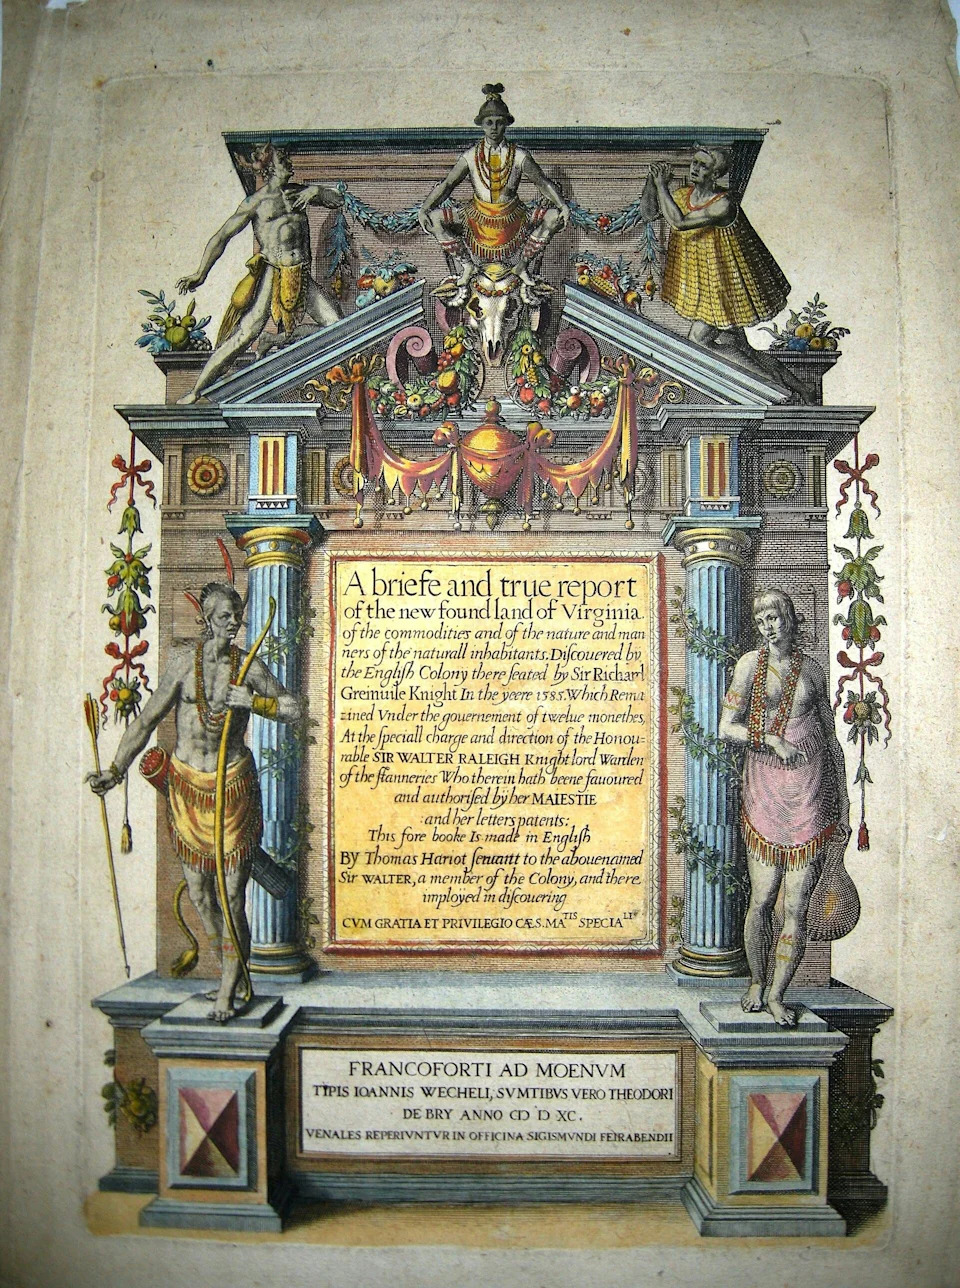 A briefe and true report
of the new found land of Virginia.
of the commodities and of the nature and man
ners of the naturall inhabitants. Diſcouered by
the Engliſh Colony there ſeated by Sir Richard
Greinuile Knight In the yeere 1585. Which Rema
ined Vnder the gouernement of twelue monethes,
At the ſpeciall charge and direction of the Honou-
rable SIR WALTER RALEIGH Knight lord Warden
of the ſtanneries Who therein hath beene fauoured
and authoriſed by her MAIESTIE
:and her letters patents:
This fore booke Is made in Engliſh
BY Thomas Hariot ſeruant to the abouenamed
Sir WALTER, a member of the Colony, and there
imployed in diſcouering
CVM GRATIA ET PRIVILEGIO CÆS. MATIS SPECIALI
FRANCOFORTI AD MOENVM
TYPIS IOANNIS WECHELI, SVMTIBVS VERO THEODORI
DE BRY ANNO CIƆ IƆ XC.
VENALES REPERIVNTVR IN OFFICINA SIGISMVNDI FEIRABENDII